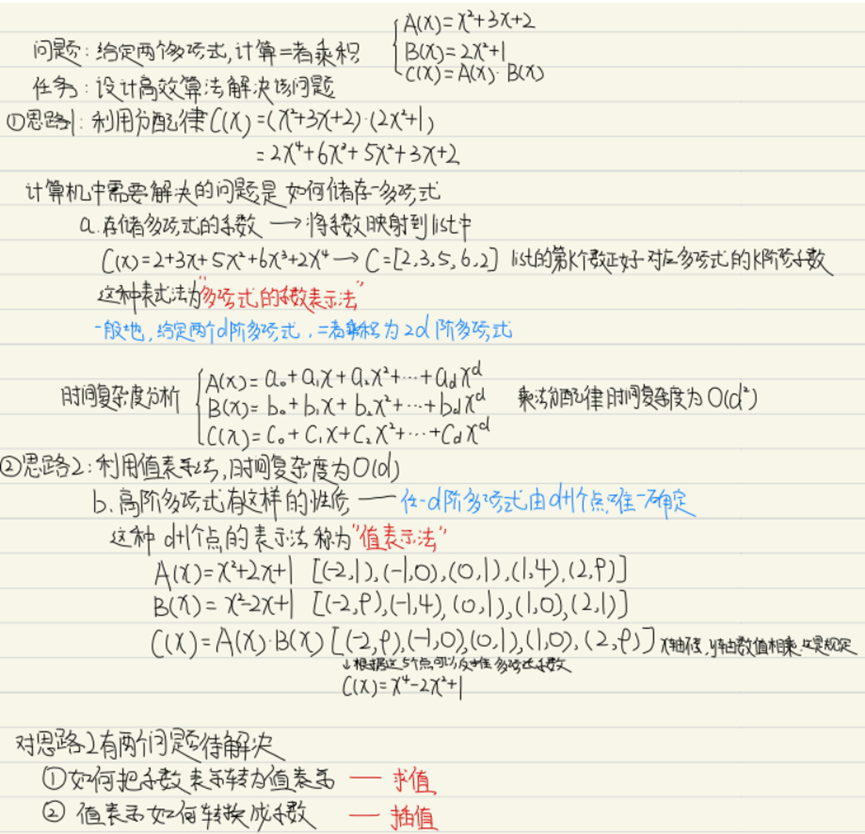 问题: 给定两个多项式, 计算二者乘积
A(x)=x²+3x+2
B(x)=2x²+1
C(x)=A(x)·B(x)
任务: 设计高效算法解决该问题
①思路1: 利用分配律 C(x)=(x²+3x+2)·(2x²+1)
=2x⁴+6x³+5x²+3x+2
计算机中需要解决的问题是 如何储存一多项式
a.存储多项式的系数 → 将系数映射到list中
C(x)=2+3x+5x²+6x³+2x⁴ → C=[2,3,5,6,2] list的第k个数正好对应多项式的k阶系数
这种表式法为"多项式的系数表示法"
一般地, 给定两个d阶多项式, 二者乘积为2d阶多项式
时间复杂度分析
A(x)=a₀+a₁x+a₂x²+⋯+a_d x^d
B(x)=b₀+b₁x+b₂x²+⋯+b_d x^d
C(x)=C₀+C₁x+C₂x²+⋯+C_d x^d
乘法分配律时间复杂度为O(d²)
②思路2: 利用值表示法, 时间复杂度为O(d)
b.高阶多项式有这样的性质 — 任一d阶多项式由d+1个点唯一确定
这种 d+1个点的表示法 称为"值表示法"
A(x)=x²+2x+1 [(-2,1),(-1,0),(0,1),(1,4),(2,9)]
B(x)=x²-2x+1 [(-2,9),(-1,4),(0,1),(1,0),(2,1)]
C(x)=A(x)·B(x) [(-2,9),(-1,0),(0,1),(1,0),(2,9)] x轴不变, y轴数值相乘, 这是规定
↓根据这5个点可以反推多项式系数
C(x)=x⁴-2x²+1
对思路2有两个问题待解决
①如何把系数表示转为值表示 — 求值
② 值表示如何转换成系数 — 插值